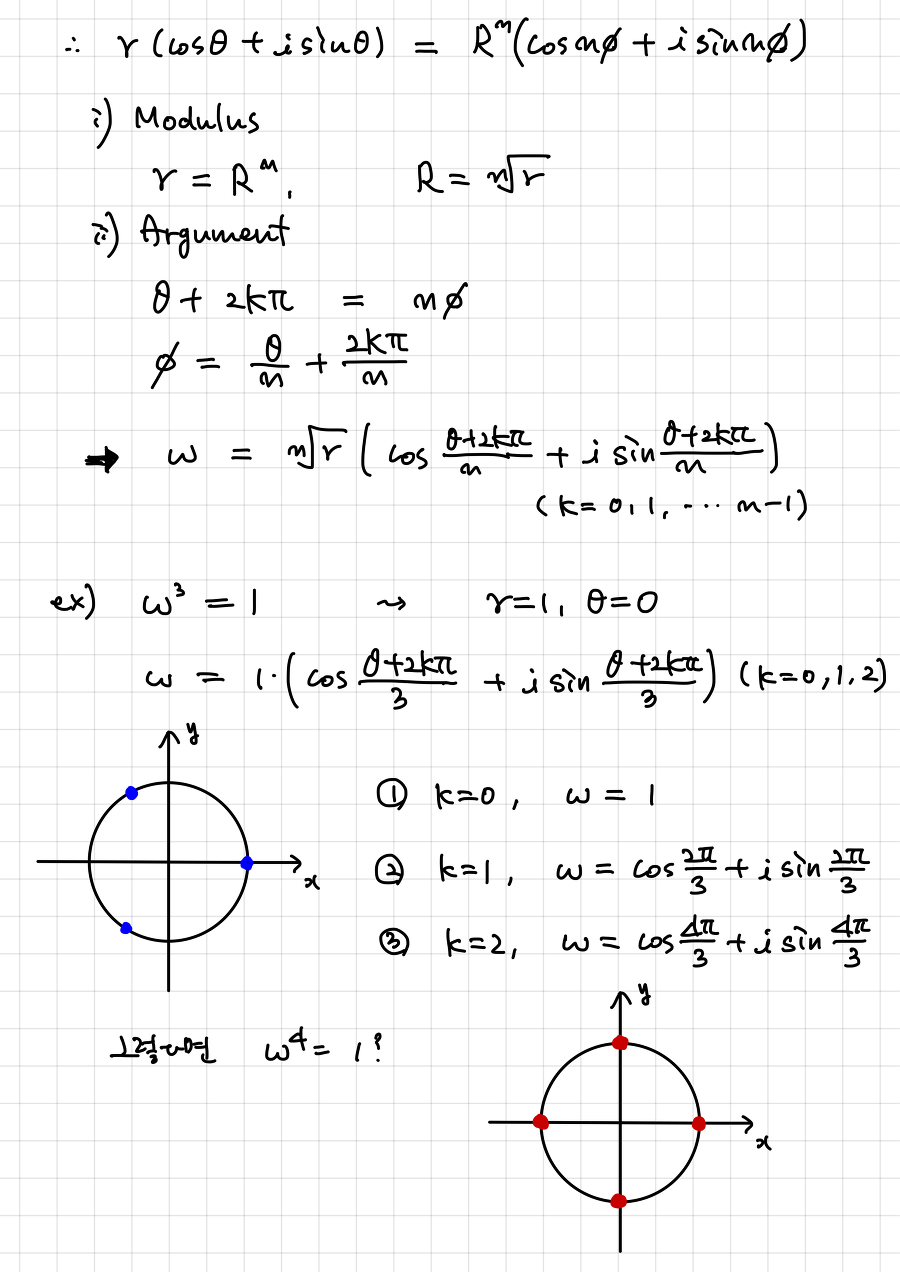 ∴ r (cosθ + i sinθ) = Rⁿ(cos nφ + i sin nφ)
i) Modulus
r = Rⁿ, R = ⁿ√r
ii) Argument
θ + 2kπ = nφ
φ = θ/n + 2kπ/n
➡ ω = ⁿ√r ( cos (θ+2kπ)/n + i sin (θ+2kπ)/n )
(k = 0, 1, ⋯ n-1)
ex) ω³ = 1 ⇝ r=1, θ=0
ω = 1·( cos (θ+2kπ)/3 + i sin (θ+2kπ)/3 ) (k=0,1,2)
y
x
① k=0, ω = 1
② k=1, ω = cos 2π/3 + i sin 2π/3
③ k=2, ω = cos 4π/3 + i sin 4π/3
ω⁴ = 1?
y
x